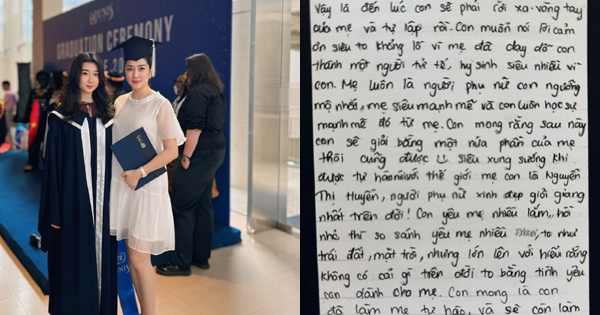 UNIS
GRADUATION CEREMONY
vậy là đến lúc con sẽ phải rời xa vòng tay
của mẹ và tự lập rồi. Con muốn nói lời cảm
ơn siêu to khổng lồ vì mẹ đã dạy dỗ con
thành một người tử tế, hy sinh siêu nhiều vì
con. Mẹ luôn là người phụ nữ con ngưỡng
mộ nhất, mẹ siêu mạnh mẽ và con luôn học sự
mạnh mẽ đó từ mẹ. Con mong rằng sau này
con sẽ giỏi bằng một nửa phần của mẹ
thôi cũng được siêu sung sướng khi
được tự hào nói với thế giới mẹ con là Nguyễn
Thị Huyền, người phụ nữ xinh đẹp giỏi giang
nhất trên đời! Con yêu mẹ nhiều lắm, hồi
nhỏ thì so sánh yêu mẹ nhiều to như
trái đất, mặt trời, nhưng lớn lên với hiểu rằng
không có cái gì trên đời to bằng tình yêu
con dành cho mẹ. Con mong là con
đã làm mẹ tự hào, và sẽ còn làm